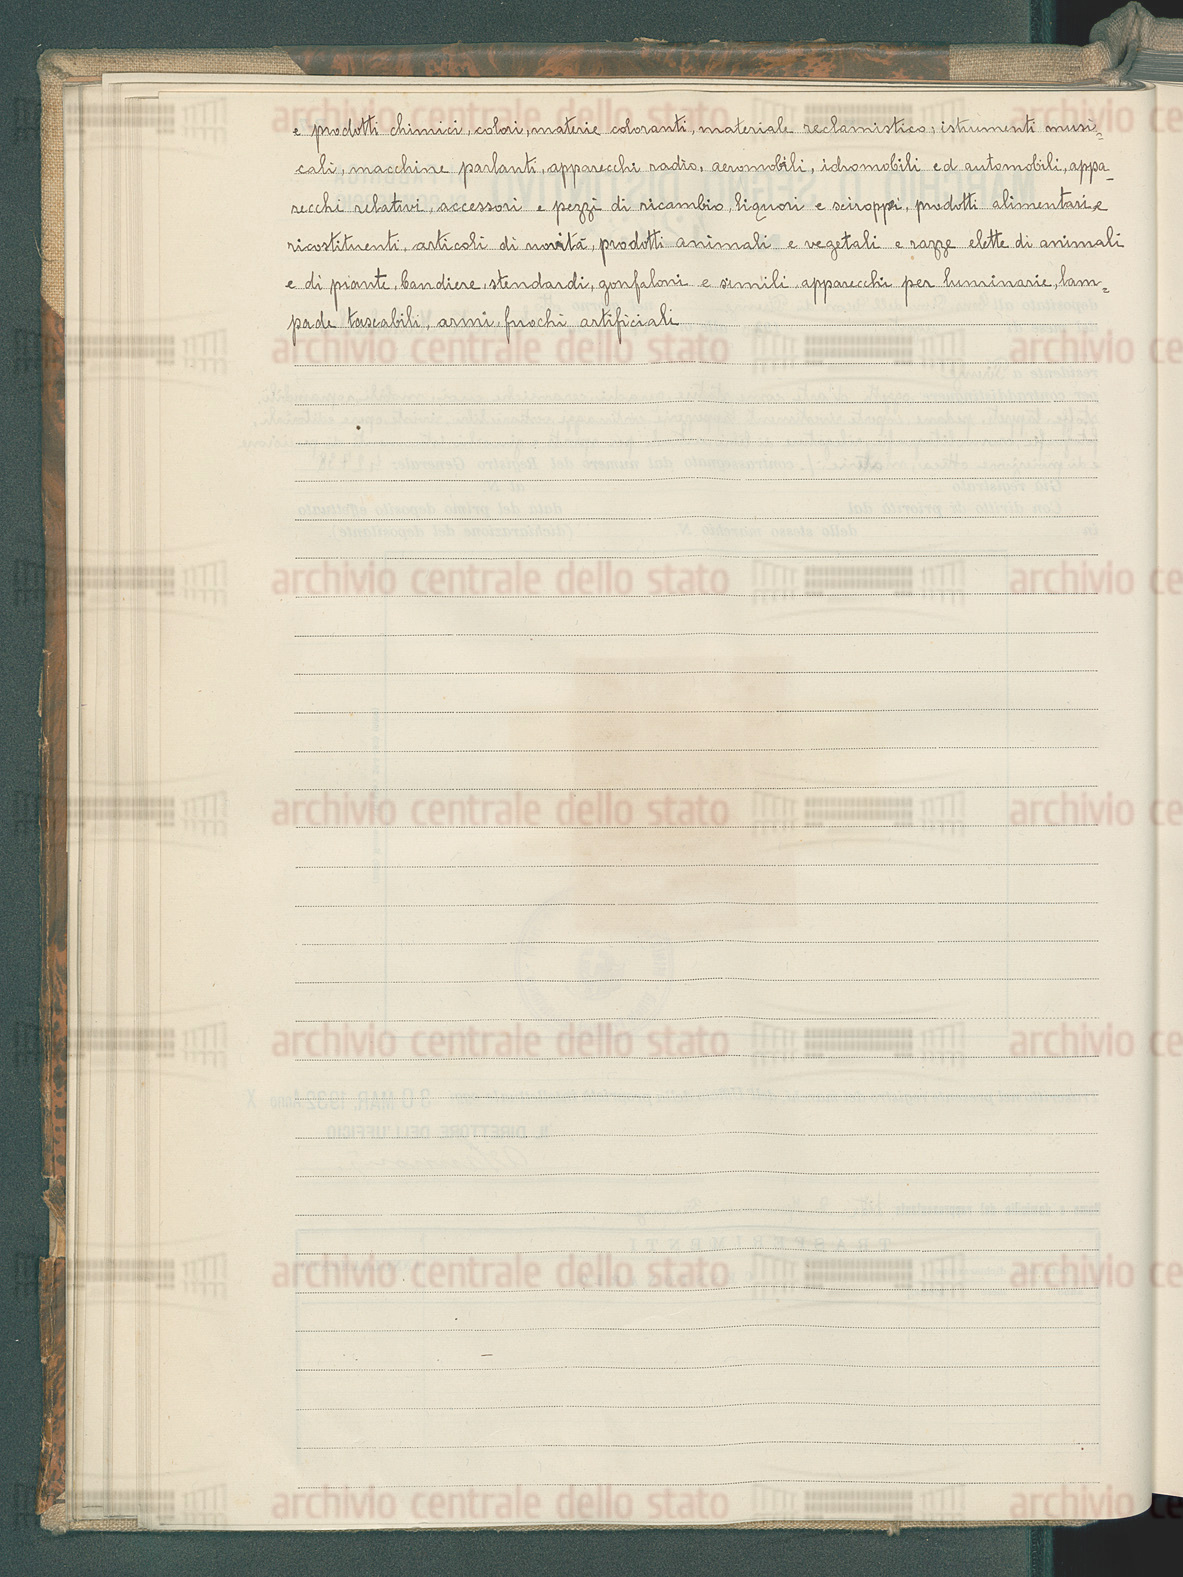 e prodotti chimici, colori, materie coloranti, materiale reclamistico, istrumenti musi=
cali, macchine parlanti, apparecchi radio, aeromobili, idromobili ed automobili, appa=
recchi relativi, accessori e pezzi di ricambio, liquori e sciroppi, prodotti alimentari e
ricostituenti, articoli di novità, prodotti animali e vegetali e razze elette di animali
e di piante, bandiere, stendardi, gonfaloni e simili, apparecchi per luminarie, lam=
pade tascabili, armi, fuochi artificiali
archivio centrale dello stato
archivio centrale dello stato
archivio centrale dello stato
archivio centrale dello stato
archivio centrale dello stato
archivio centrale dello stato
archivio centrale dello stato